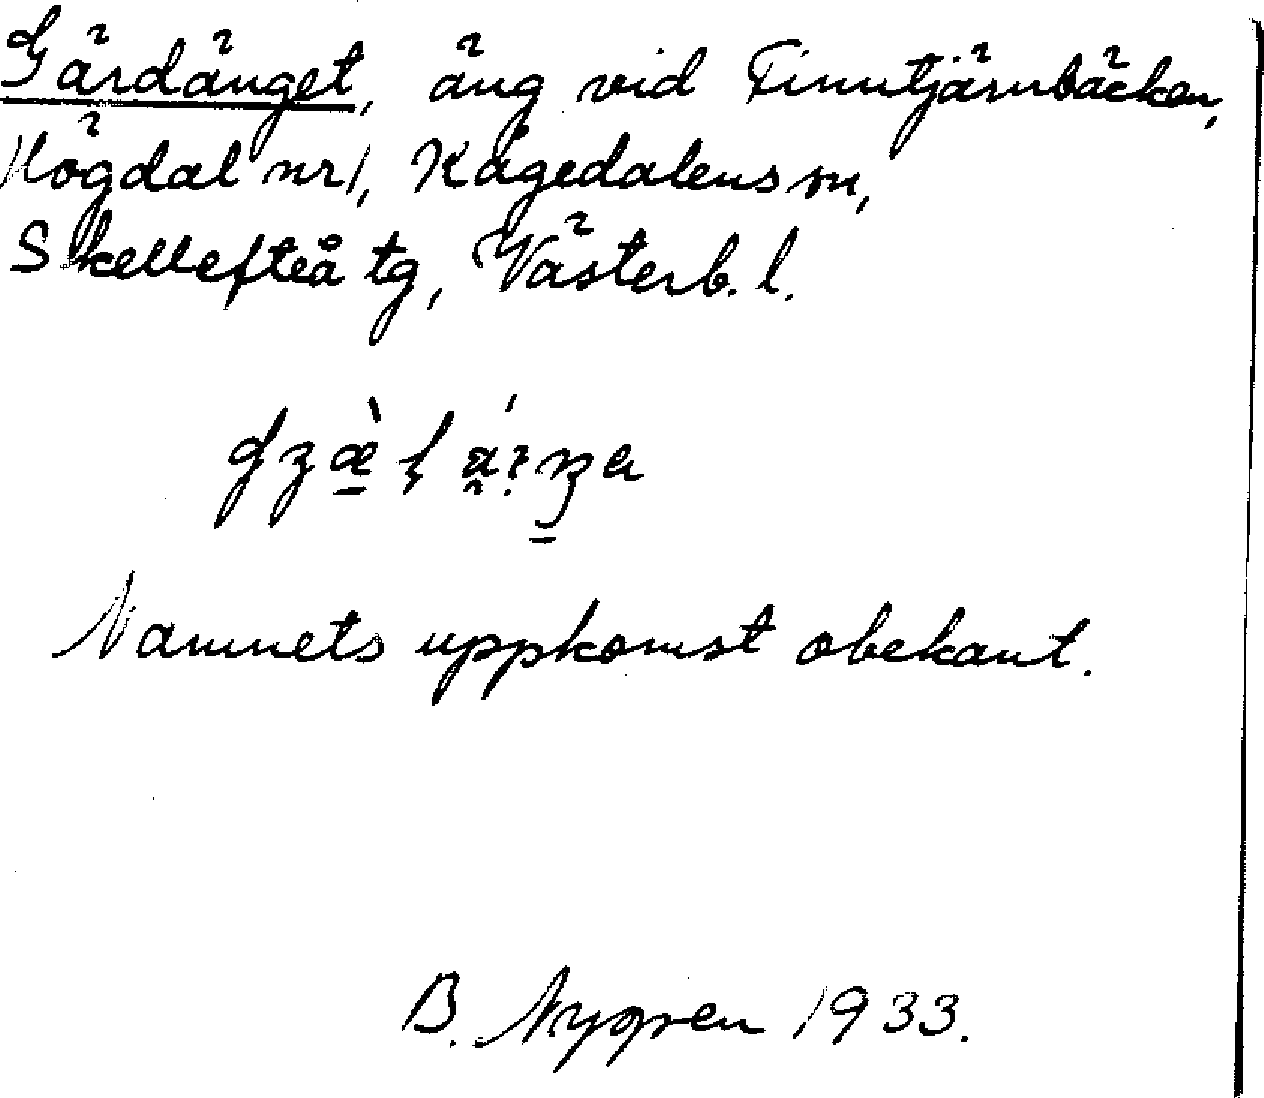 Gärdänget, äng vid Finntjärnbäcken,
Högdal nr 1, Kågedalens sn,
Skellefteå tg, Västerb. l.
Namnets uppkomst obekant.
B. Nygren 1933.